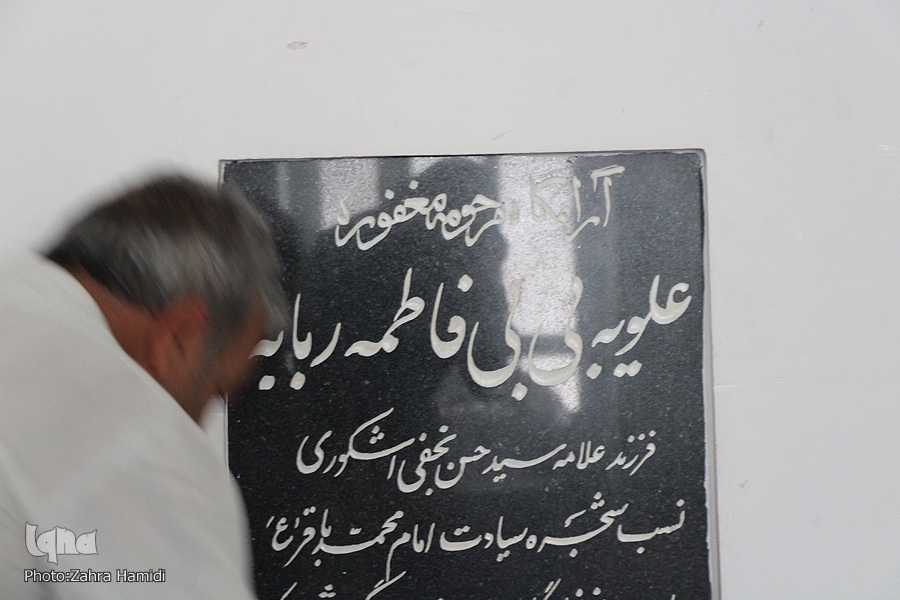 آرامگاه مرحومه مغفوره
علویه بی بی فاطمه ربابه
فرزند علامه سید حسن نجفی اشکوری
نسب شجره سیادت امام محمد باقر (ع)
iqna
Photo:Zahra Hamidi